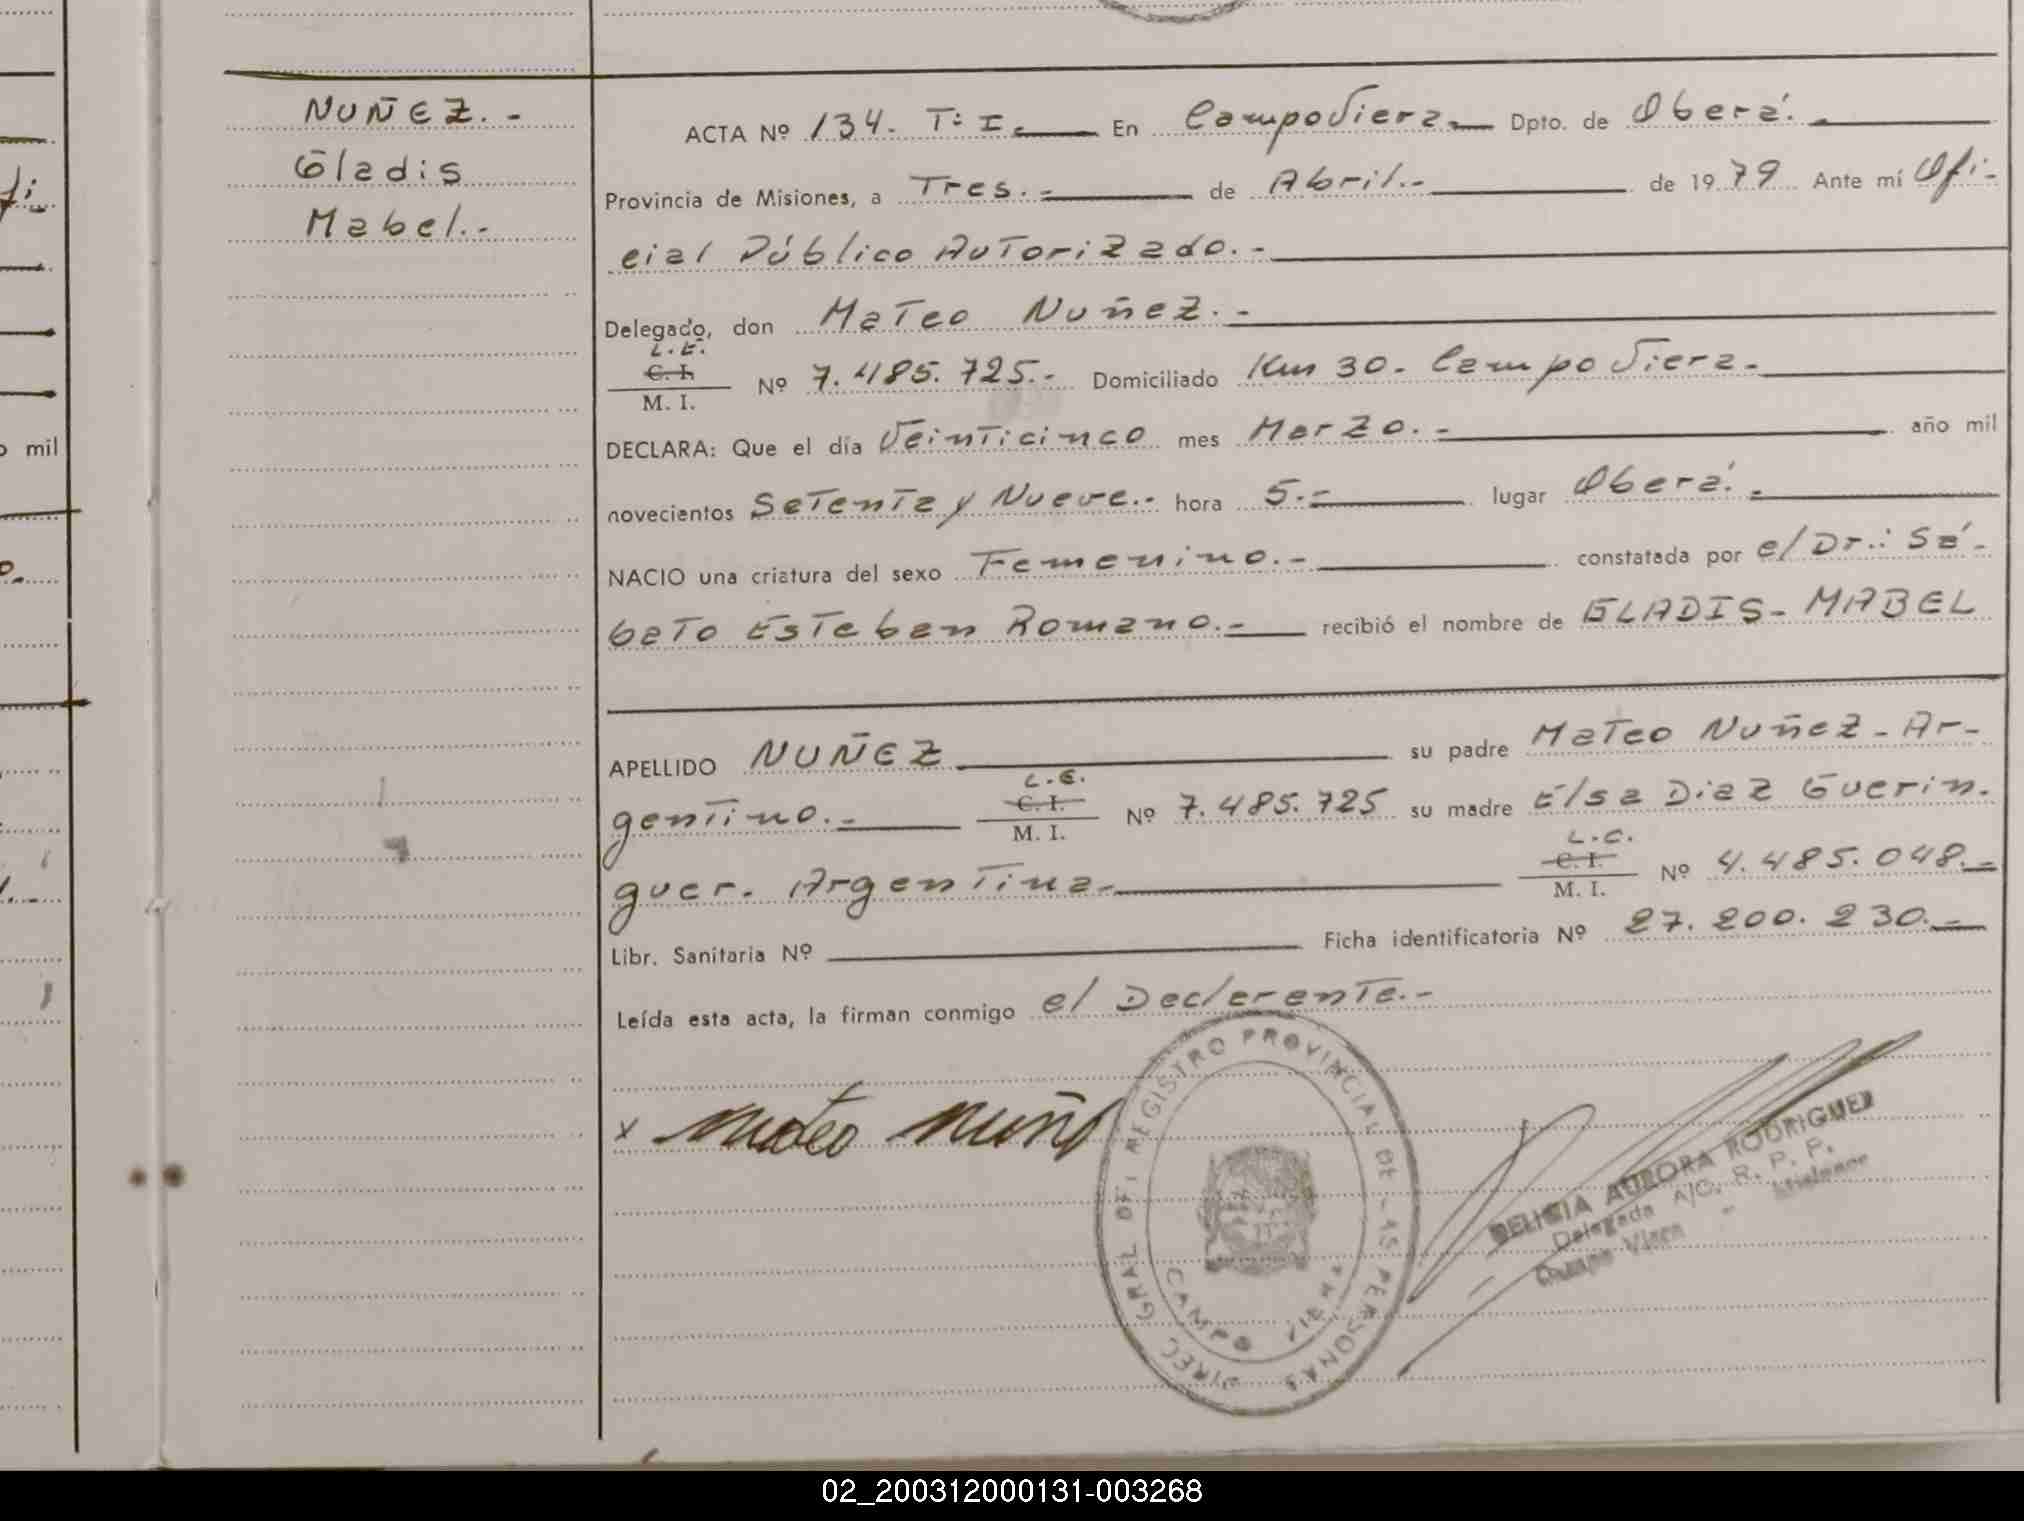 NUÑEZ.-
Gladis
Mabel.-
ACTA Nº 134. T: I. En Campo Viera. Dpto. de Oberá.
Provincia de Misiones, a Tres.- de Abril.- de 1979 Ante mí Ofi-
cial Público Autorizado.-
Delegado, don Mateo Nuñez.-
L.E.
C. I.
M. I.
Nº 7.485.725.- Domiciliado Km 30. Campo Viera.
DECLARA: Que el día Veinticinco mes Marzo.- año mil
novecientos Setenta y Nueve.- hora 5.- lugar Oberá.
NACIO una criatura del sexo Femenino.- constatada por el Dr.: Sá-
bato Esteban Romano.- recibió el nombre de GLADIS- MABEL
APELLIDO NUÑEZ su padre Mateo Nuñez- Ar-
gentino.- L.E. C. I. M. I. Nº 7.485.725 su madre Elsa Diaz Guerin.
guer. Argentina. L.C. C. I. M. I. Nº 4.485.048.-
Libr. Sanitaria Nº Ficha identificatoria Nº 27.200.230.-
Leída esta acta, la firman conmigo el Declarente.-
x Mateo Nuñ
DIREC GRAL OFI REGISTRO PROVINCIAL DE LAS PERSONAS
CAMPO VIERA
DELICIA AURORA RODRIGUEZ
Delegada A/C. R. P. P.
Campo Viera - Misiones
mil
02_200312000131-003268